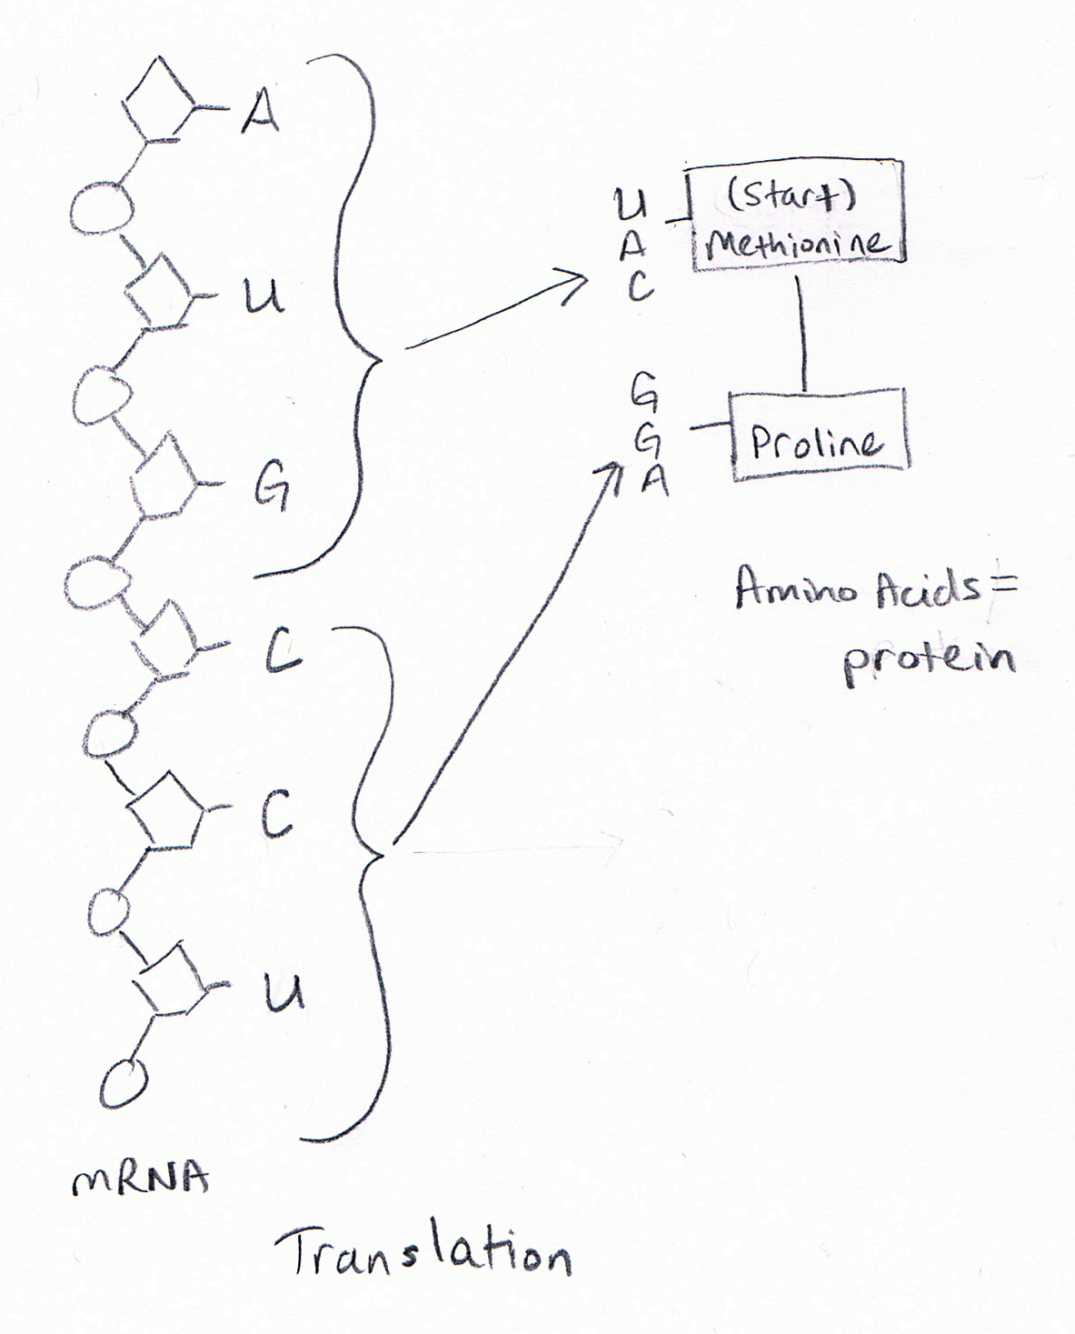 A
U
G
C
C
U
U
A
C
(Start)
Methionine
G
G
A
Proline
Amino Acids =
protein
mRNA
Translation